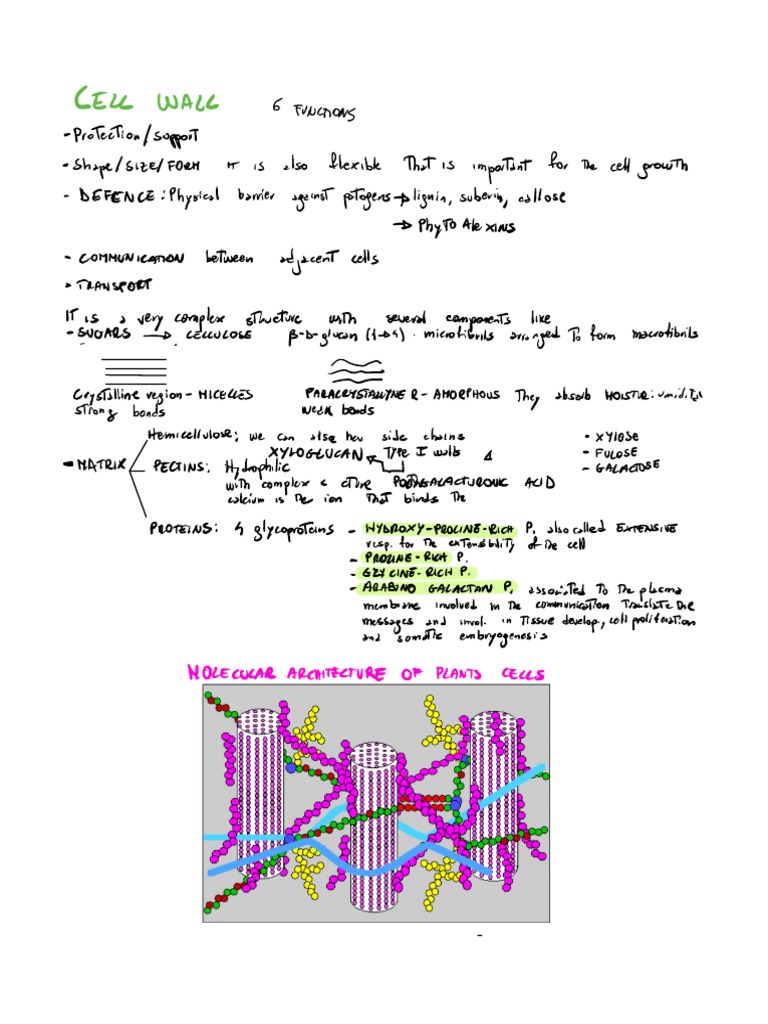 CELL WALL 6 FUNCTIONS
- Protection/support
- Shape/SIZE/FORM IT is also flexible That is important for the cell growth
- DEFENCE: Physical barrier against potogens → lignin, suberin, callose
→ PhyTO AlexINS
- COMMUNICATION between adjacent cells
- TRANSPORT
IT is a very complex structure with several components like
- SUGARS → CELLULOSE β-D-glucan (1→4). microfibrils arranged To form macrofibrils
Crystalline region - MICELLES PARACRYSTALLYNE R - AMORPHOUS They absorb
strong bonds weak bonds
Hemicellulose; we can also side chains - XYLOSE
XYLOGLUCAN Type I walls - FULOSE
- MATRIX PECTINS: Hydrophilic - GALACTOSE
with complex ACID
calcium is the ion that binds the
PROTEINS: 4 glycoproteins - HYDROXY-PROLINE-RICH P. also called EXTENSIVE
resp. for the extensibility of the cell
- PROLINE-RICH P.
- GLYCINE-RICH P.
- ARABINO GALACTAN P. associated To the plasma
membrane involved in the communication Translate
messages and invol. in Tissue develop., cell proliferation
and somatic embryogenesis
MOLECULAR ARCHITECTURE OF PLANTS CELLS